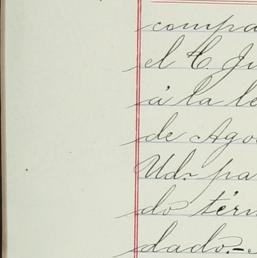 compa
el C Ju
á la le
de Ago
Ud. pa
do térm
dado.-